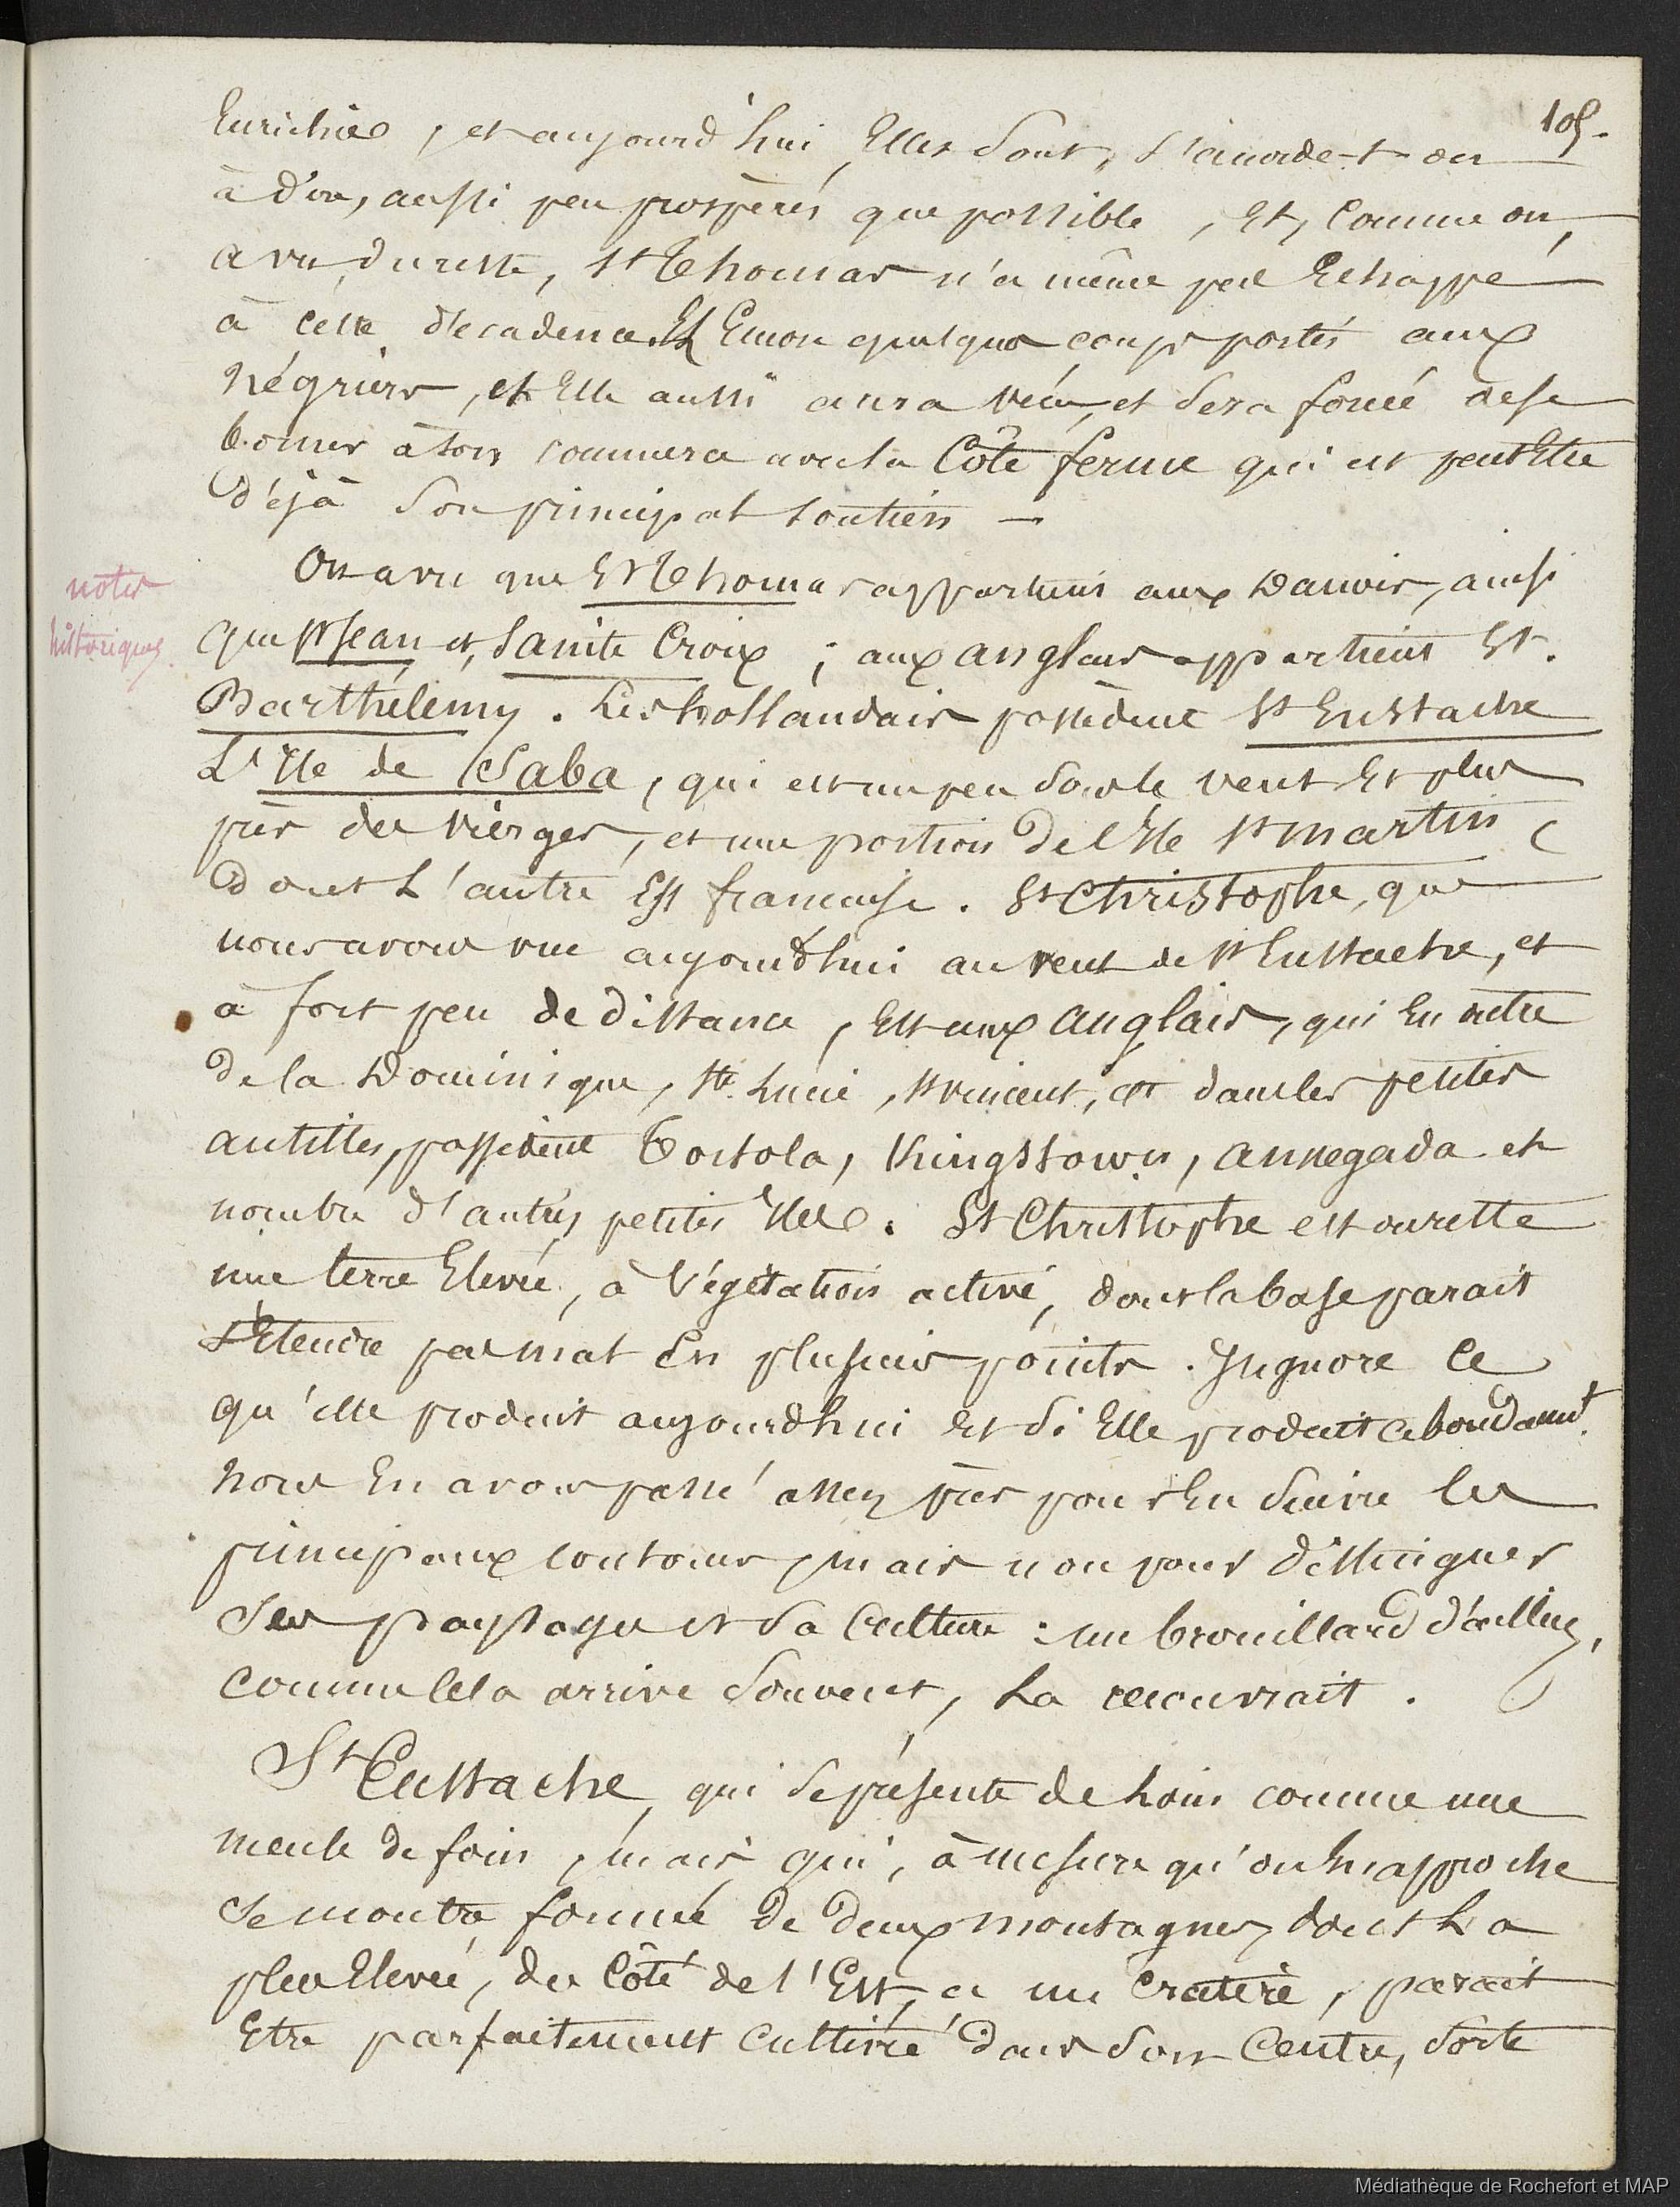 105.
Enrichies, et aujourd'hui Elles sont, s'accorde-t-on
à dire, aussi peu prospères que possible, Et, comme on
a vu du reste, St Thomas n'a même pas Echappé
à cette décadence. Et Encore quelques coups portés aux
négriers, et Elle aussi aura vécu, et sera forcée de se
borner à son commerce avec la Côte ferme qui est peut Etre
déjà son principal soutien —
On a vu que St Thomas appartient aux Danois, ainsi
que St Jean et Sainte Croix ; aux anglais appartient St.
Barthélemy. Les hollandais possèdent St Eustache
L'Ile de Saba, qui est un peu sous le vent Et plus
près des Vierges, et une portion de l'Ile St martin
dont L'autre Est francaise. St Christophe, que
nous avons vue aujourd'hui au vent de St Eustache, et
à fort peu de distance, Est aux anglais, qui En outre
de la Dominique, Ste Lucie, St Vincent, &c dans les petites
antilles, possèdent Tortola, Kingstown, annegada et
nombre d'autres petites Iles. St Christophe est du reste
une terre Elevée, à Végétation active, dont la base parait
s'Etendre pas mal En plusieurs points. J'ignore ce
qu'elle produit aujourd'hui Et si Elle produit abondamt.
Nous En avons passé assez près pour En suivre les
principaux contours, mais non pour distinguer
ses paysages et sa Culture : un brouillard d'ailleurs,
comme cela arrive souvent, La recouvrait.
St Eustache, qui se présente de loin comme une
meule de foin, mais qui, à mesure qu'on En approche
se montre formée de deux montagnes, dont La
plus Elevée, du Côté de l'Est, a un Cratère, parait
Etre parfaitement Cultivée dans son Centre, sorte
notes
historiques.
Médiathèque de Rochefort et MAP